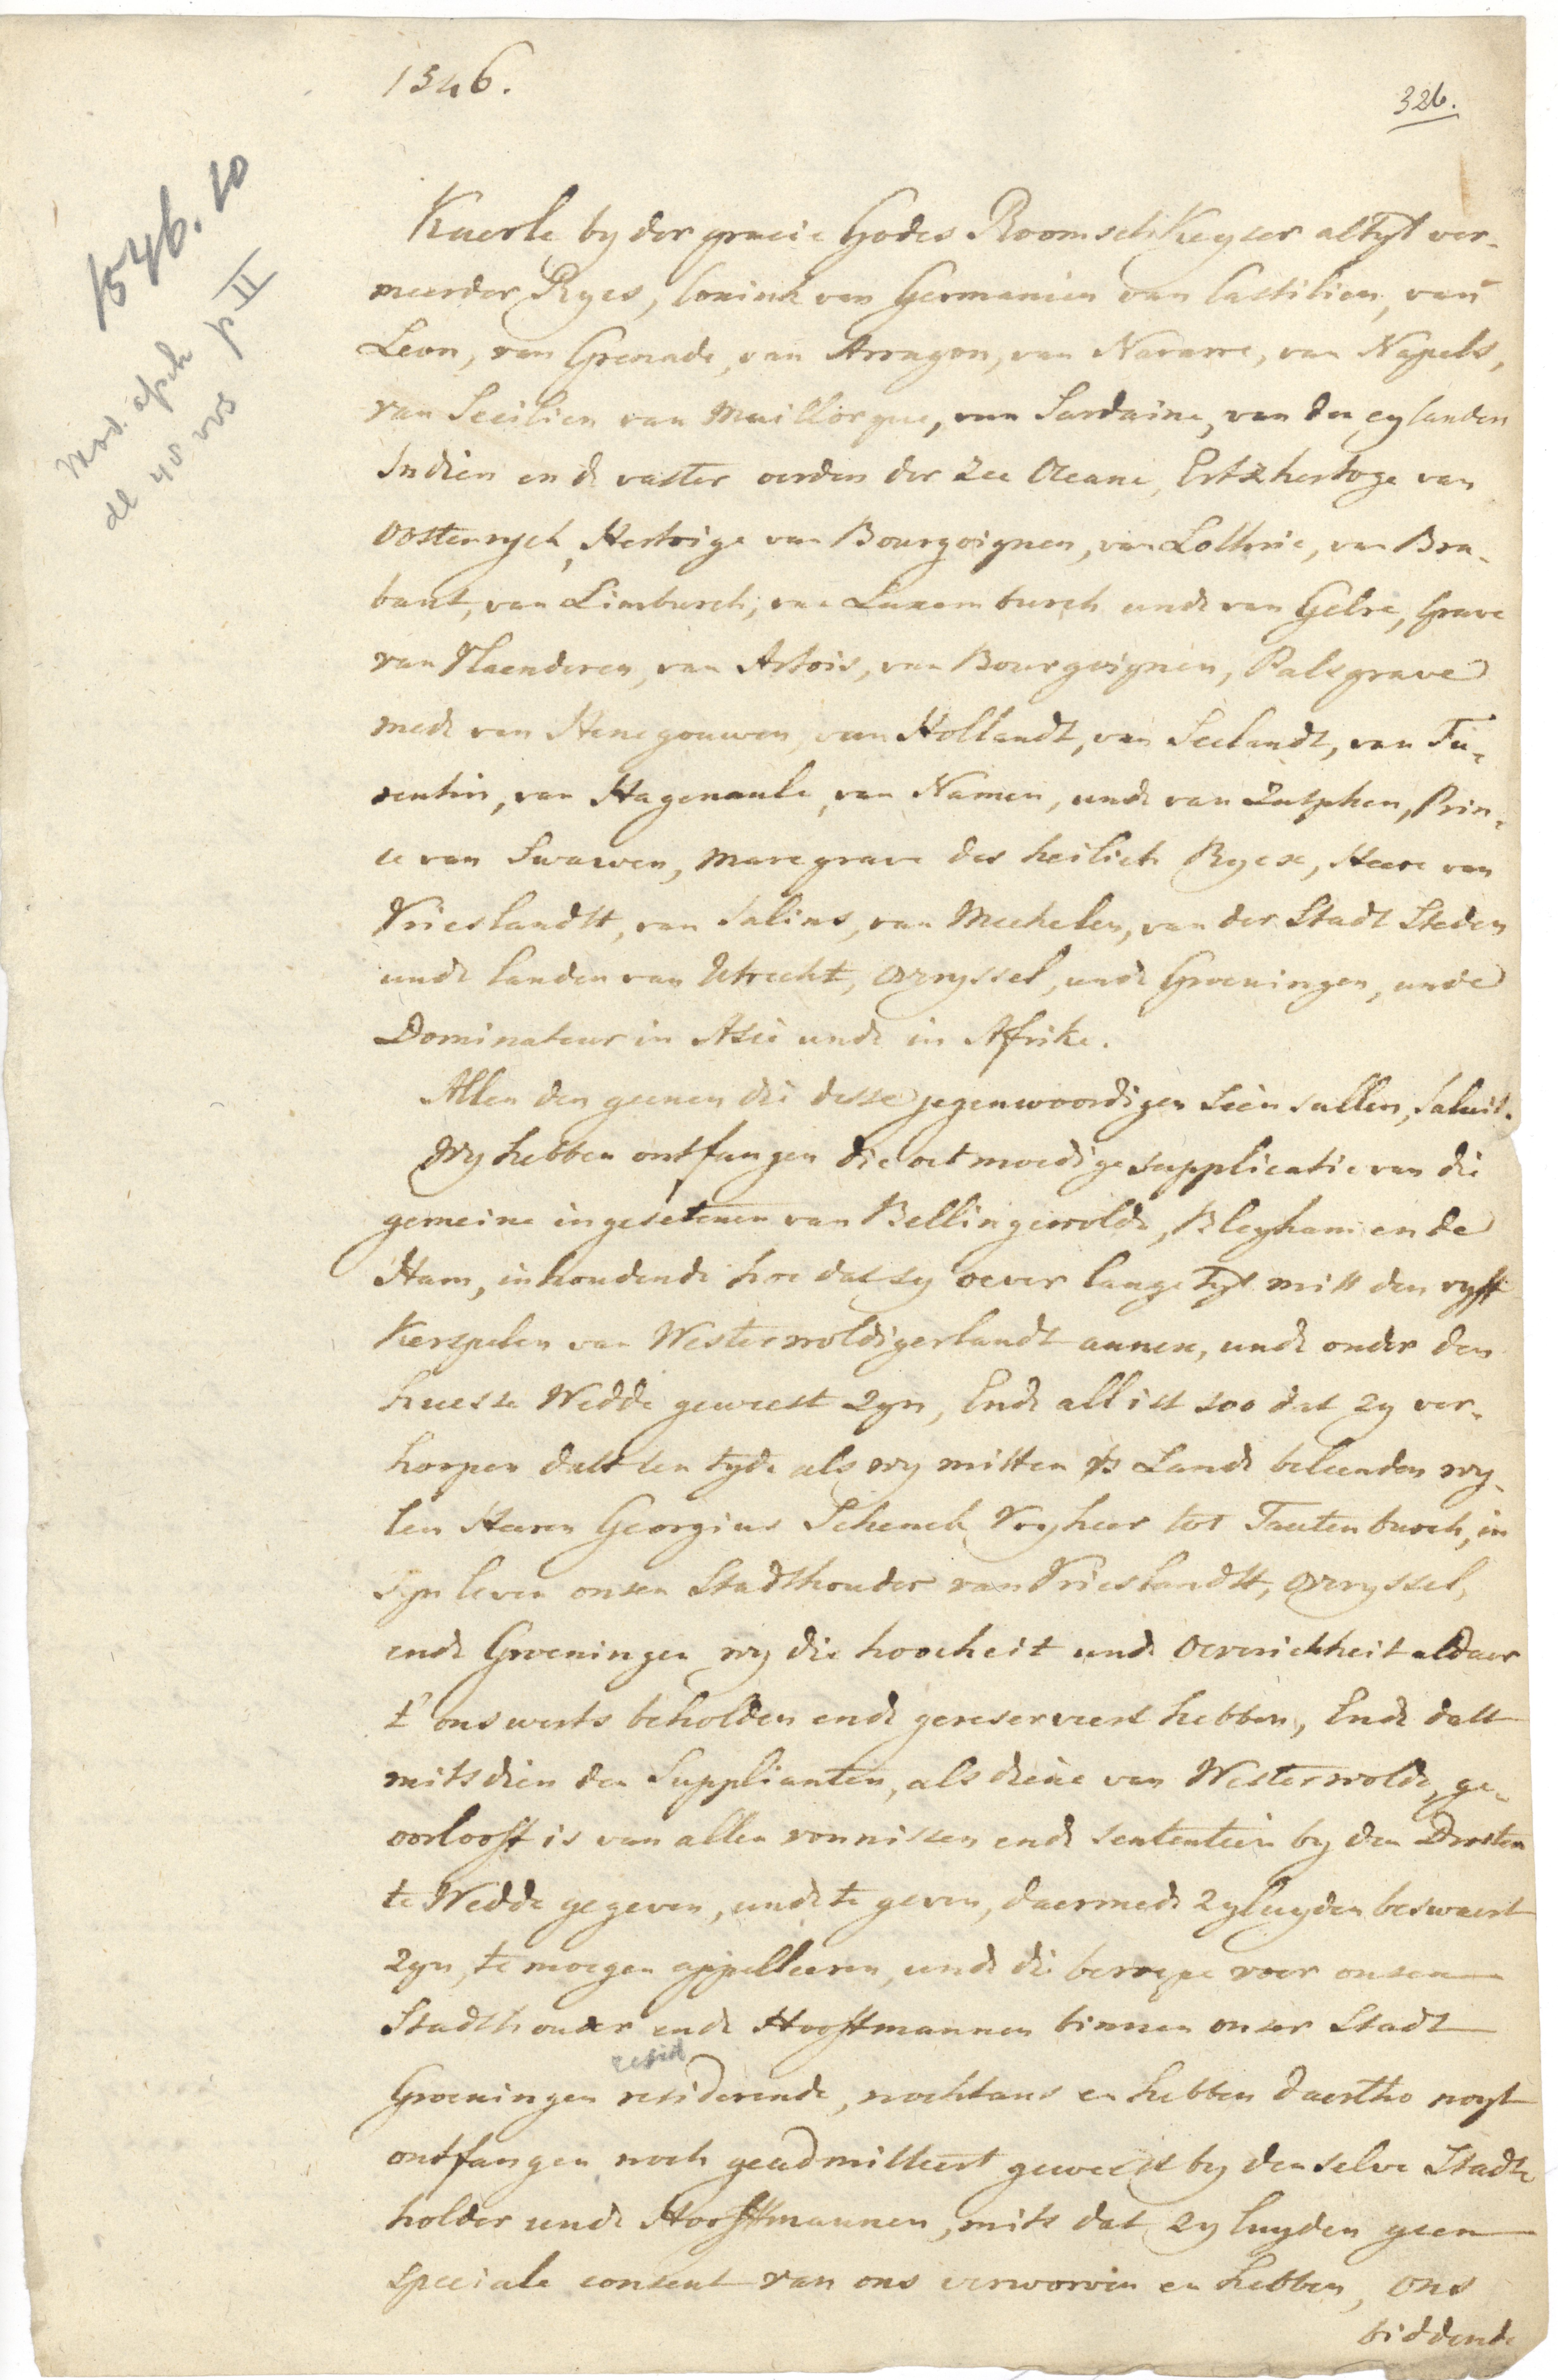 1546.
326.
1546.10
Mod. afsch
de 40 vos p II
Kaerle by der gracie Godes Roomsch Keyser altyt ver-
meerder Rycs, Conink van Germanien van Castilien, van
Leon, van Grenade, van Arragon, van Navarre, van Napels,
van Secilien van Maillorque, van Sardaine, van den eylanden
Indien ende vaster eerden der Zee Oceane, Ertzhertoge van
Oostenrych, Hertoige van Bourgoignen, van Lothrie, van Bra-
bant, van Limburch, van Luxemburch unde van Gelre, Grave
van Vlaenderen, van Artois, van Bourgoignen, Palsgrave
mede van Henegouwen, van Hollandt, van Seelandt, van Fe-
rentin, van Hagenaule, van Namen, unde van Zutphen, Prin-
ce van Swawen, Marcgrave des heilich Rycx, Heere van
Vrieslandtt, van Salins, van Mechelen, van der Stadt Steden
unde landen van Utrecht, Overyssel, unde Groeningen, unde
Dominateur in Asie unde in Afrike.
Allen den geenen die desse jegenwoordigen seen sullen, Saluit.
Wy hebben ontfangen die oetmoedige supplicatie van die
gemeine ingesetenen van Bellingewolde, Bleyham ende
Ham, inhoudende hoe dat sy oever lange tyt mitt den vyff
Kerspelen van Westerwoldigerlandt annex, unde onder den
huesse Wedde geweest zyn, Ende all ist soo dat zy ver-
hoopen datt ten tyde als wy mitten vs Lande beleenden wy-
len Heeren Georgius Schenck Vryheer tot Tautenburch, in
syn leven onsen Stadthouder van Vrieslandtt, Overyssel,
ende Groeningen wy die hoocheit unde Overichheit aldaer
t'onswerts beholden ende gereserveert hebben, Ende datt
mitsdien den Supplianten, als diene van Westerwolde, ge-
oorlooft is van allen vonnissen ende sententien by den Drosten
te Wedde gegeven, unde te geven, daermede zyluyden beswaert
zyn, te moegen appelleeren, unde die beroepe voer onsen
Stadthouder ende Hooftmannen binnen onser Stadt
resid
Groeningen residerende, nochtans en hebben daertho noyt
ontfangen noch geadmitteert geweest by denselve Stadt-
holder unde Hooftmannen, mits dat zy luyden geen
speciale consent van ons verworven en hebben, Ons
biddende